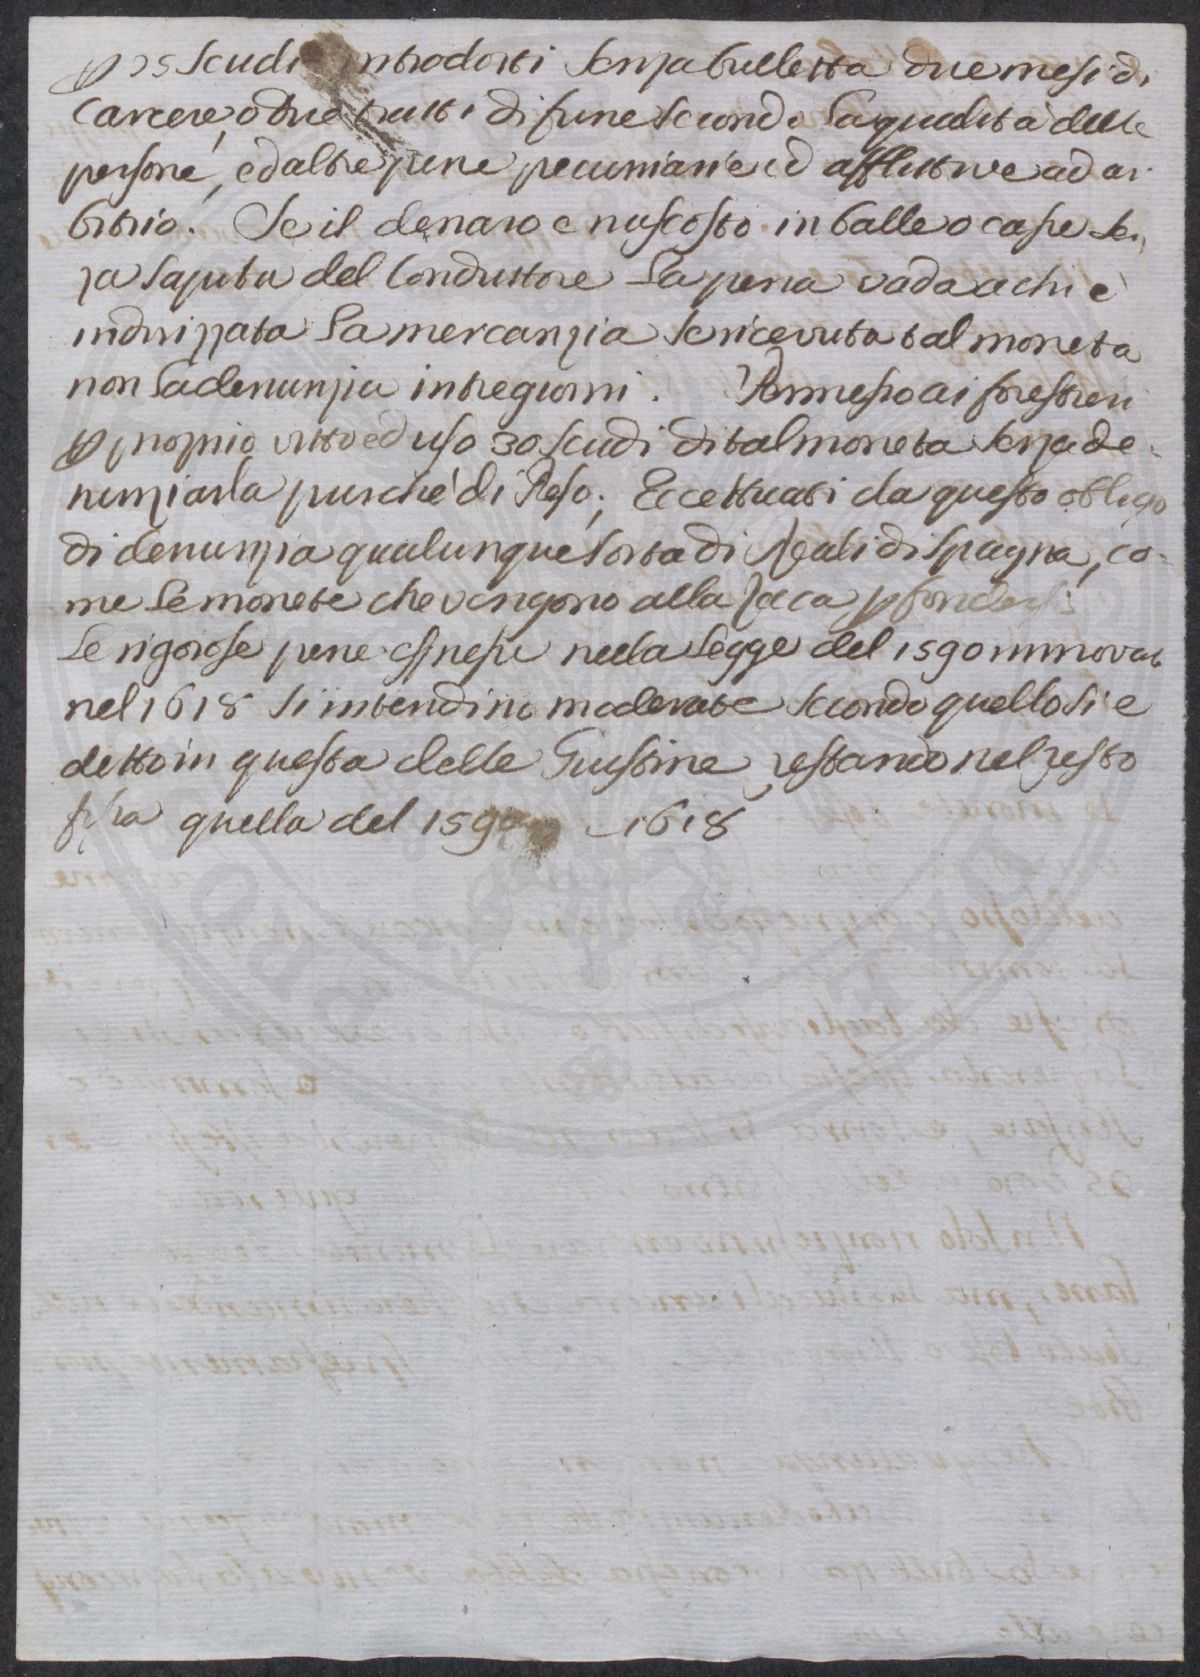 p 25 scudi introdotti senza bulletta due mesi di
carcere, o due tratti di fune secondo la qualità delle
persone, ed altre pene pecuniarie ed afflittive ad ar-
bitrio. Se il denaro è nascosto in balle o casse sen-
za saputa del Conduttore la pena vada a chi è
indirizzata la mercanzia se ricevuta tal moneta
non la denunzia in tre giorni. Permesso ai forestieri
p proprio vitto ed uso 30 scudi di tal moneta senza de-
nunziarla purché di Peso; Eccettuati da questo obligo
di denunzia qualunque sorta di Reali di Spagna, co-
me le monete che vengono alla Zecca p fondersi
Le rigorose pene espresse nella Legge del 1590 rinnovata
nel 1618 si intendino moderate secondo quello si è
detto in questa delle Giustine restando nel resto
fissa quella del 1590 1618